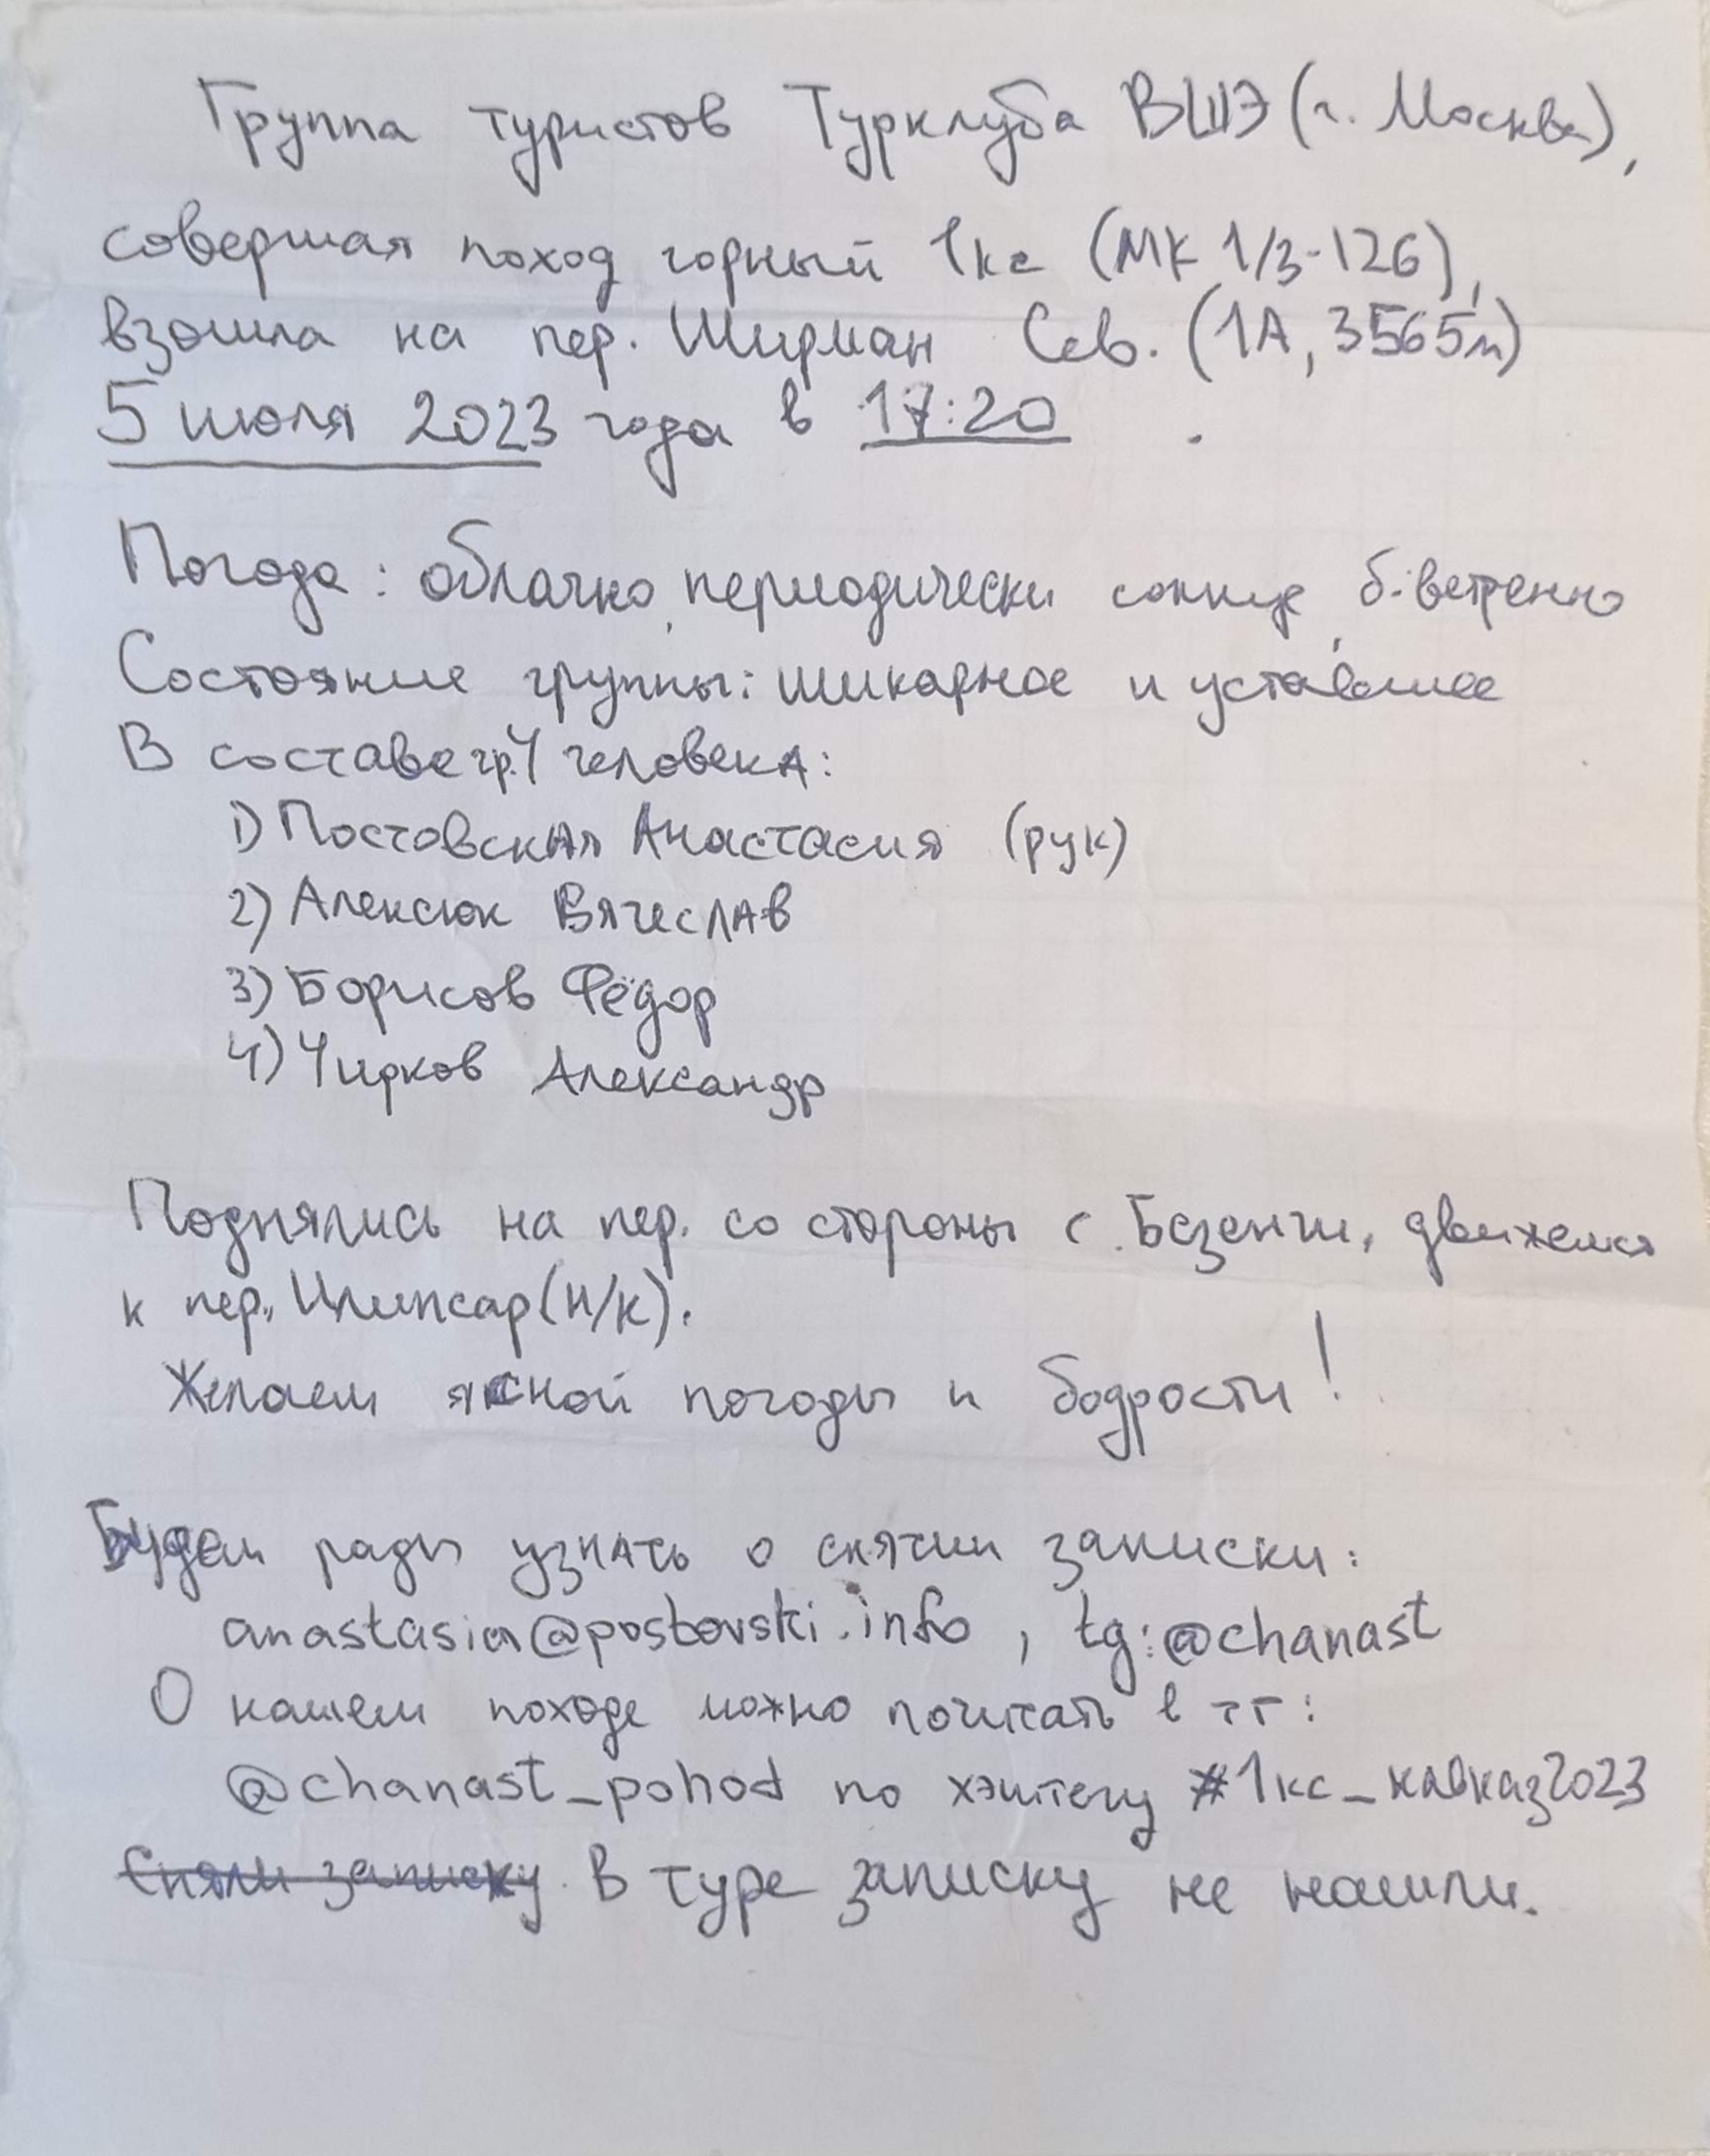 Группа туристов Турклуба ВШЭ (г. Москва),
совершая поход горный 1кс (МК 1/3-126),
взошла на пер. Ширман Сев. (1А, 3565м)
5 июля 2023 года в 17:20 .
Погода: облачно, периодически солнце, б. ветренно
Состояние группы: шикарное и уставшее
В составе гр. 4 человека:
1) Постовская Анастасия (рук)
2) Алексюк Вячеслав
3) Борисов Фёдор
4) Чирков Александр
Поднялись на пер. со стороны с. Безенги, движемся
к пер. (Н/К).
Желаем ясной погоды и бодрости!
Будем рады узнать о снятии записки:
anastasia@postovski.info, tg:@chanast
О нашем походе можно почитать в тг:
@chanast_pohod по хэштегу #1кс_кавказ2023
Сняли записку. В туре записку не нашли.